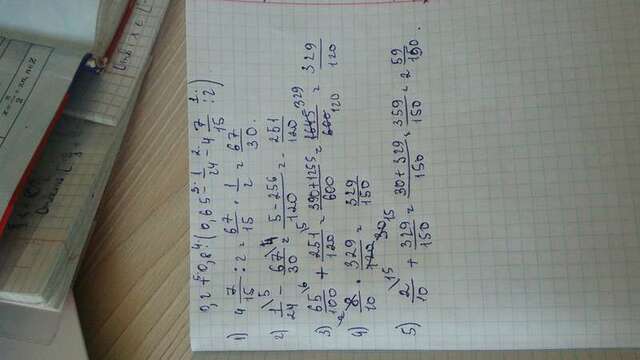 x = π/2 + 2πn, n∈Z
0,2 + 0,8 · (0,65 - 1/24 - 4 7/15 : 2)
5 4 3 2 1
1) 4 7/15 : 2 = 67/15 · 1/2 = 67/30.
2) 1/24 \5 - 67/30 \4 = 5-256/120 = - 251/120
3) 65/100 \6 + 251/120 \5 = 390+1255/600 = 1645/600 329/120 = 329/120
4) 8/10 · 329/120 = 329/150
5) 2/10 \15 + 329/150 = 30+329/150 = 359/150 = 2 59/150.